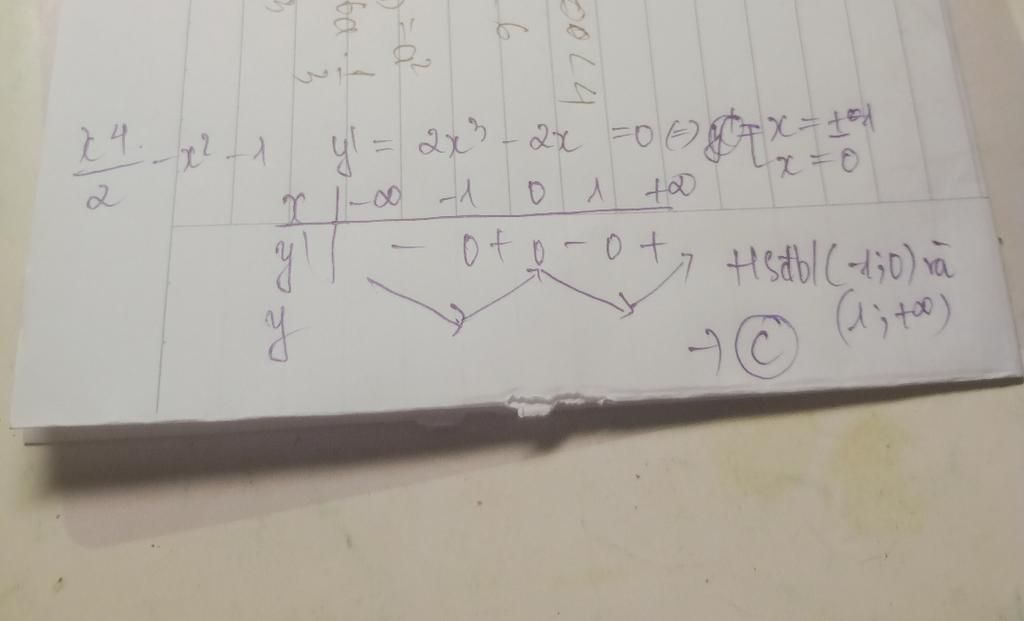 x4/2 - x² - 1 y' = 2x³ - 2x = 0 (=) [ x = ±1
x = 0
x | -∞ -1 0 1 +∞
y' | - 0 + 0 - 0 + Hsđbl (-1;0) và
y (1;+∞)
→ C